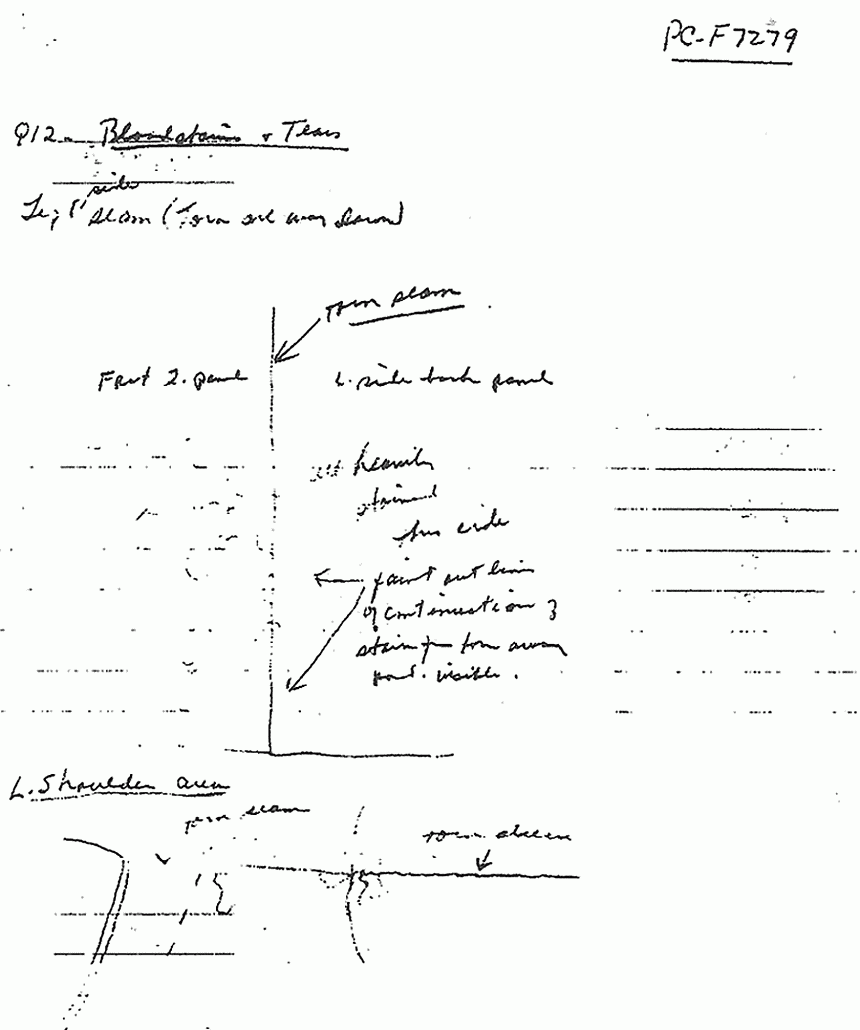 PC-F7279
Q12- Bloodstains + Tears
side
seam (Torn all way down)
Torn seam
Front L. panel
L. side back panel
heavily
stained
this side
faint out line
of continuation of
stain fr torn away
part. visible.
L. Shoulder area
torn seam
torn sleeve